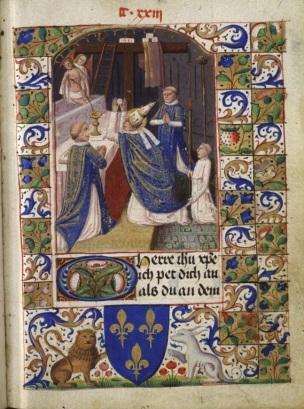 xxiii
herre ihu xpe
ich pet dich an
als du an dem